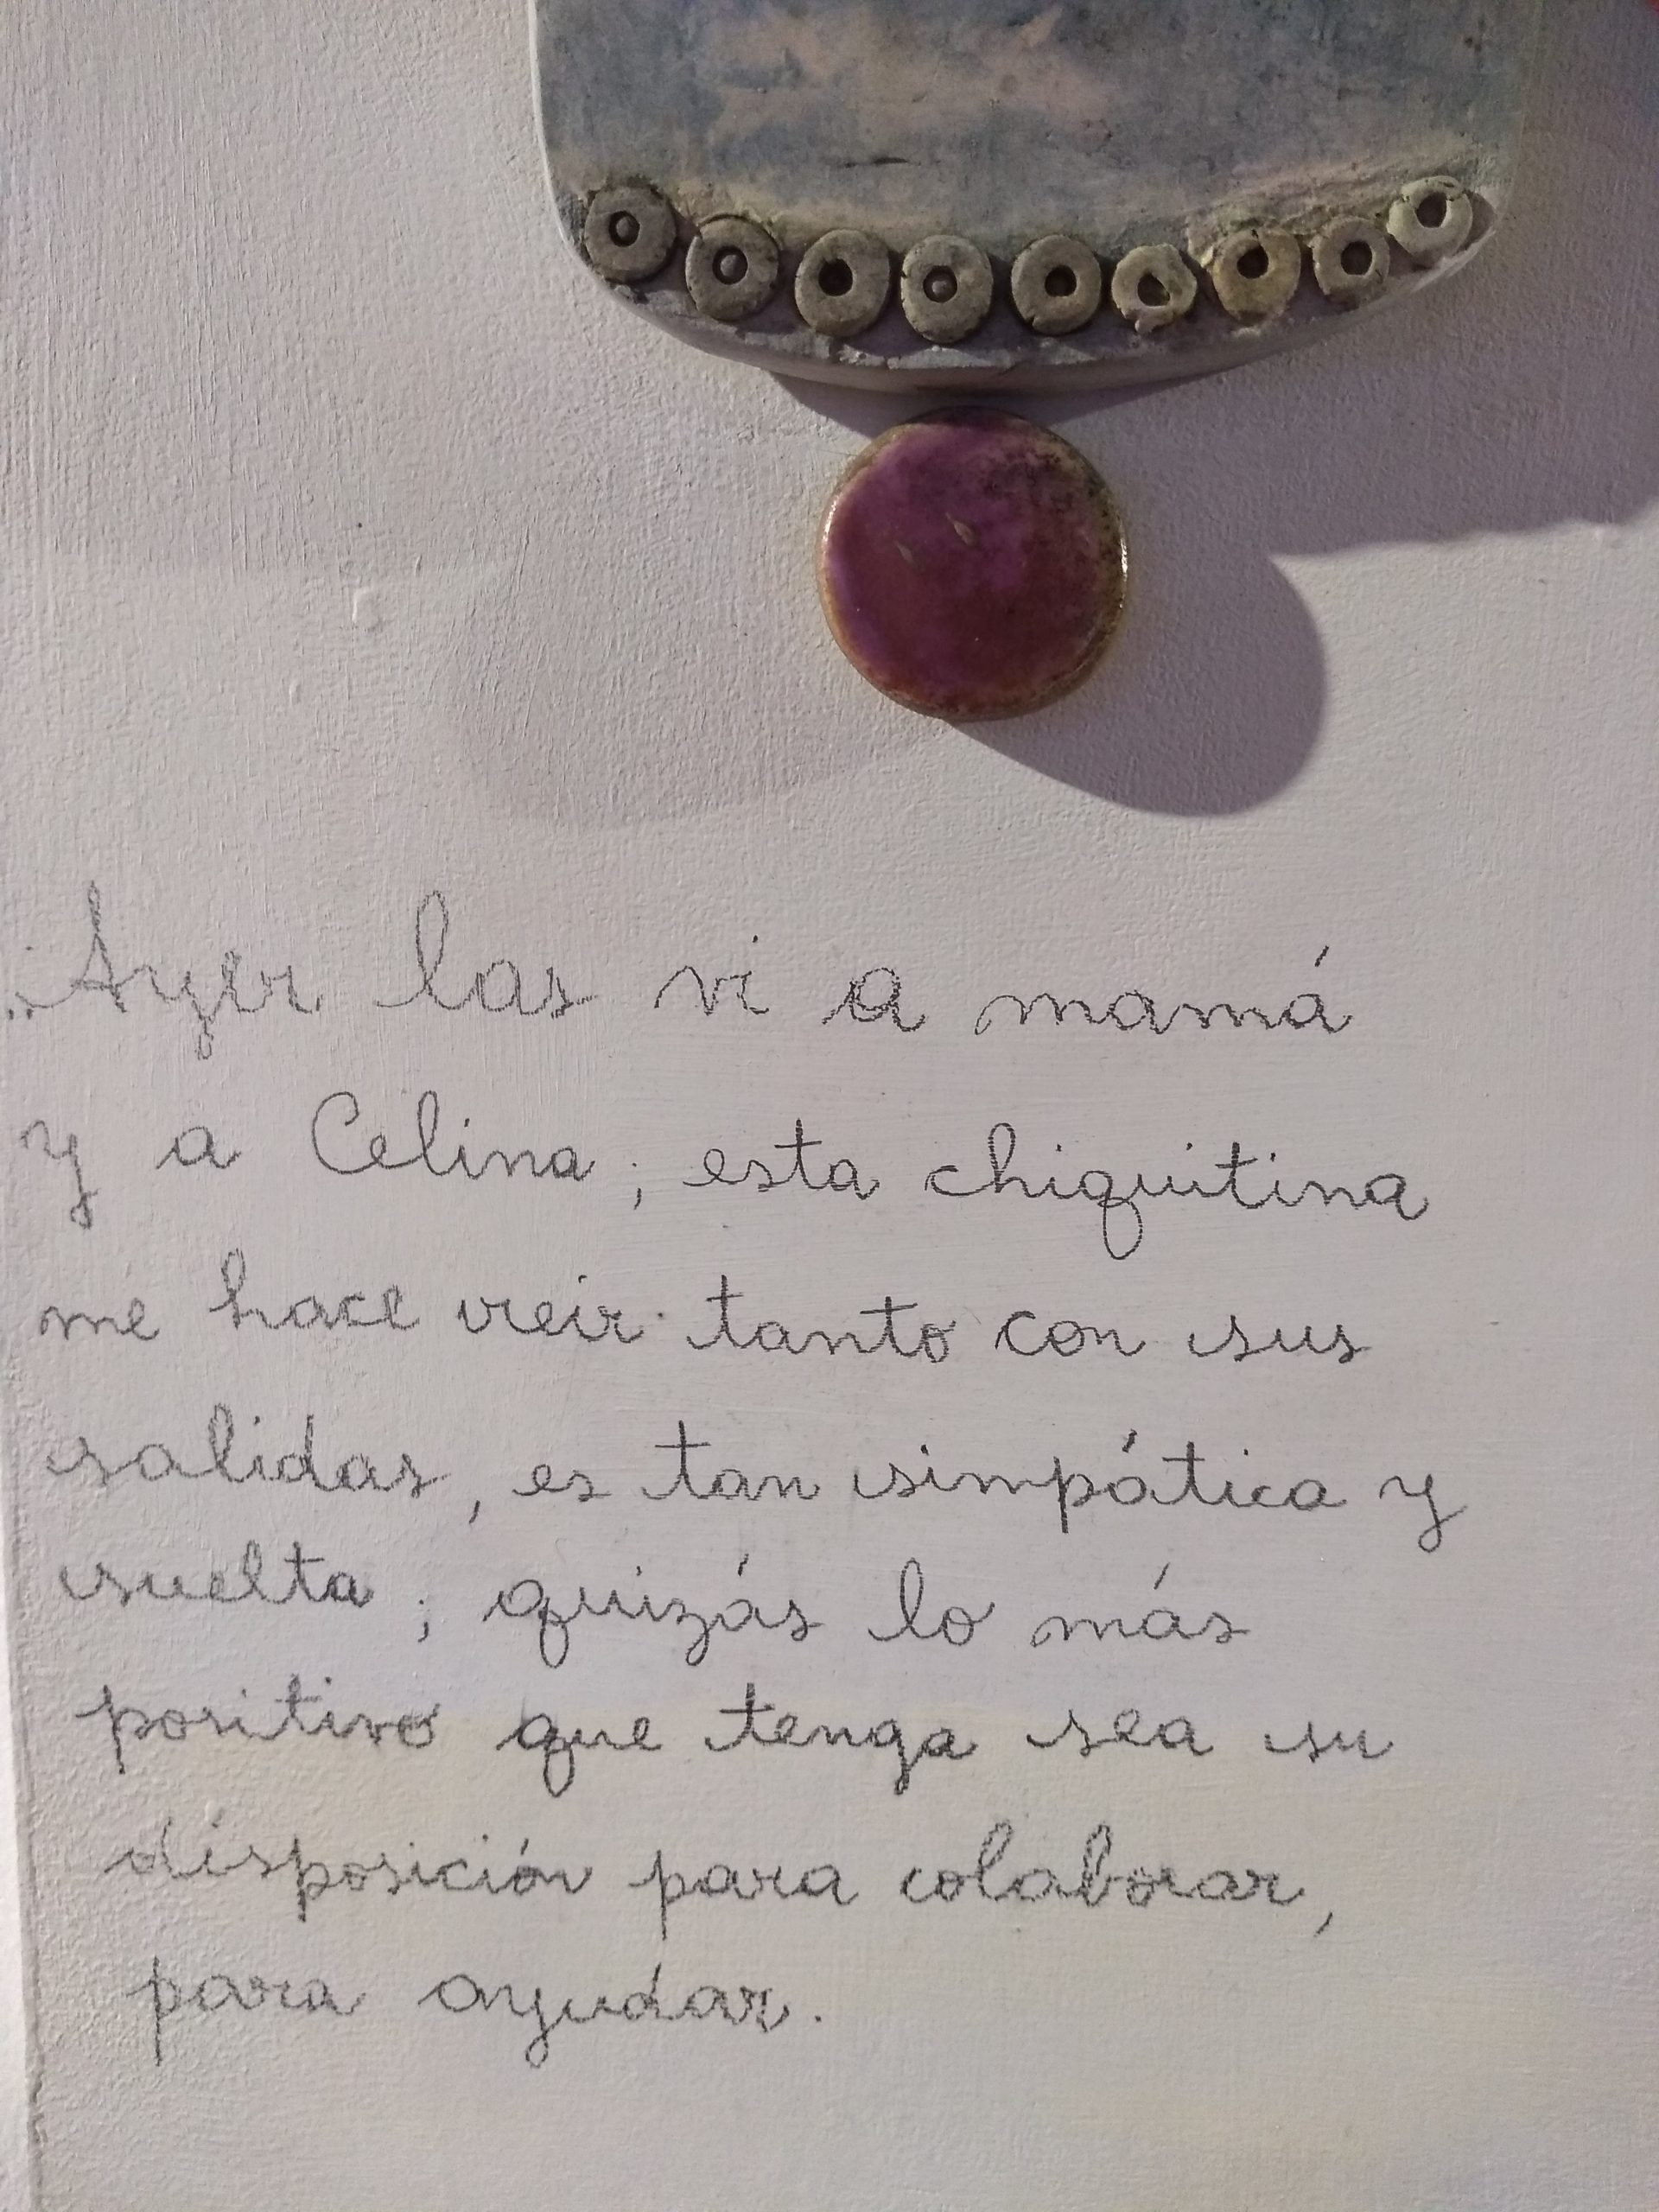 ..Ayer las vi a mamá
y a Celina; esta chiquitina
me hace reir tanto con sus
salidas, es tan simpática y
suelta; quizás lo más
positivo que tenga sea su
disposición para colaborar,
para ayudar.